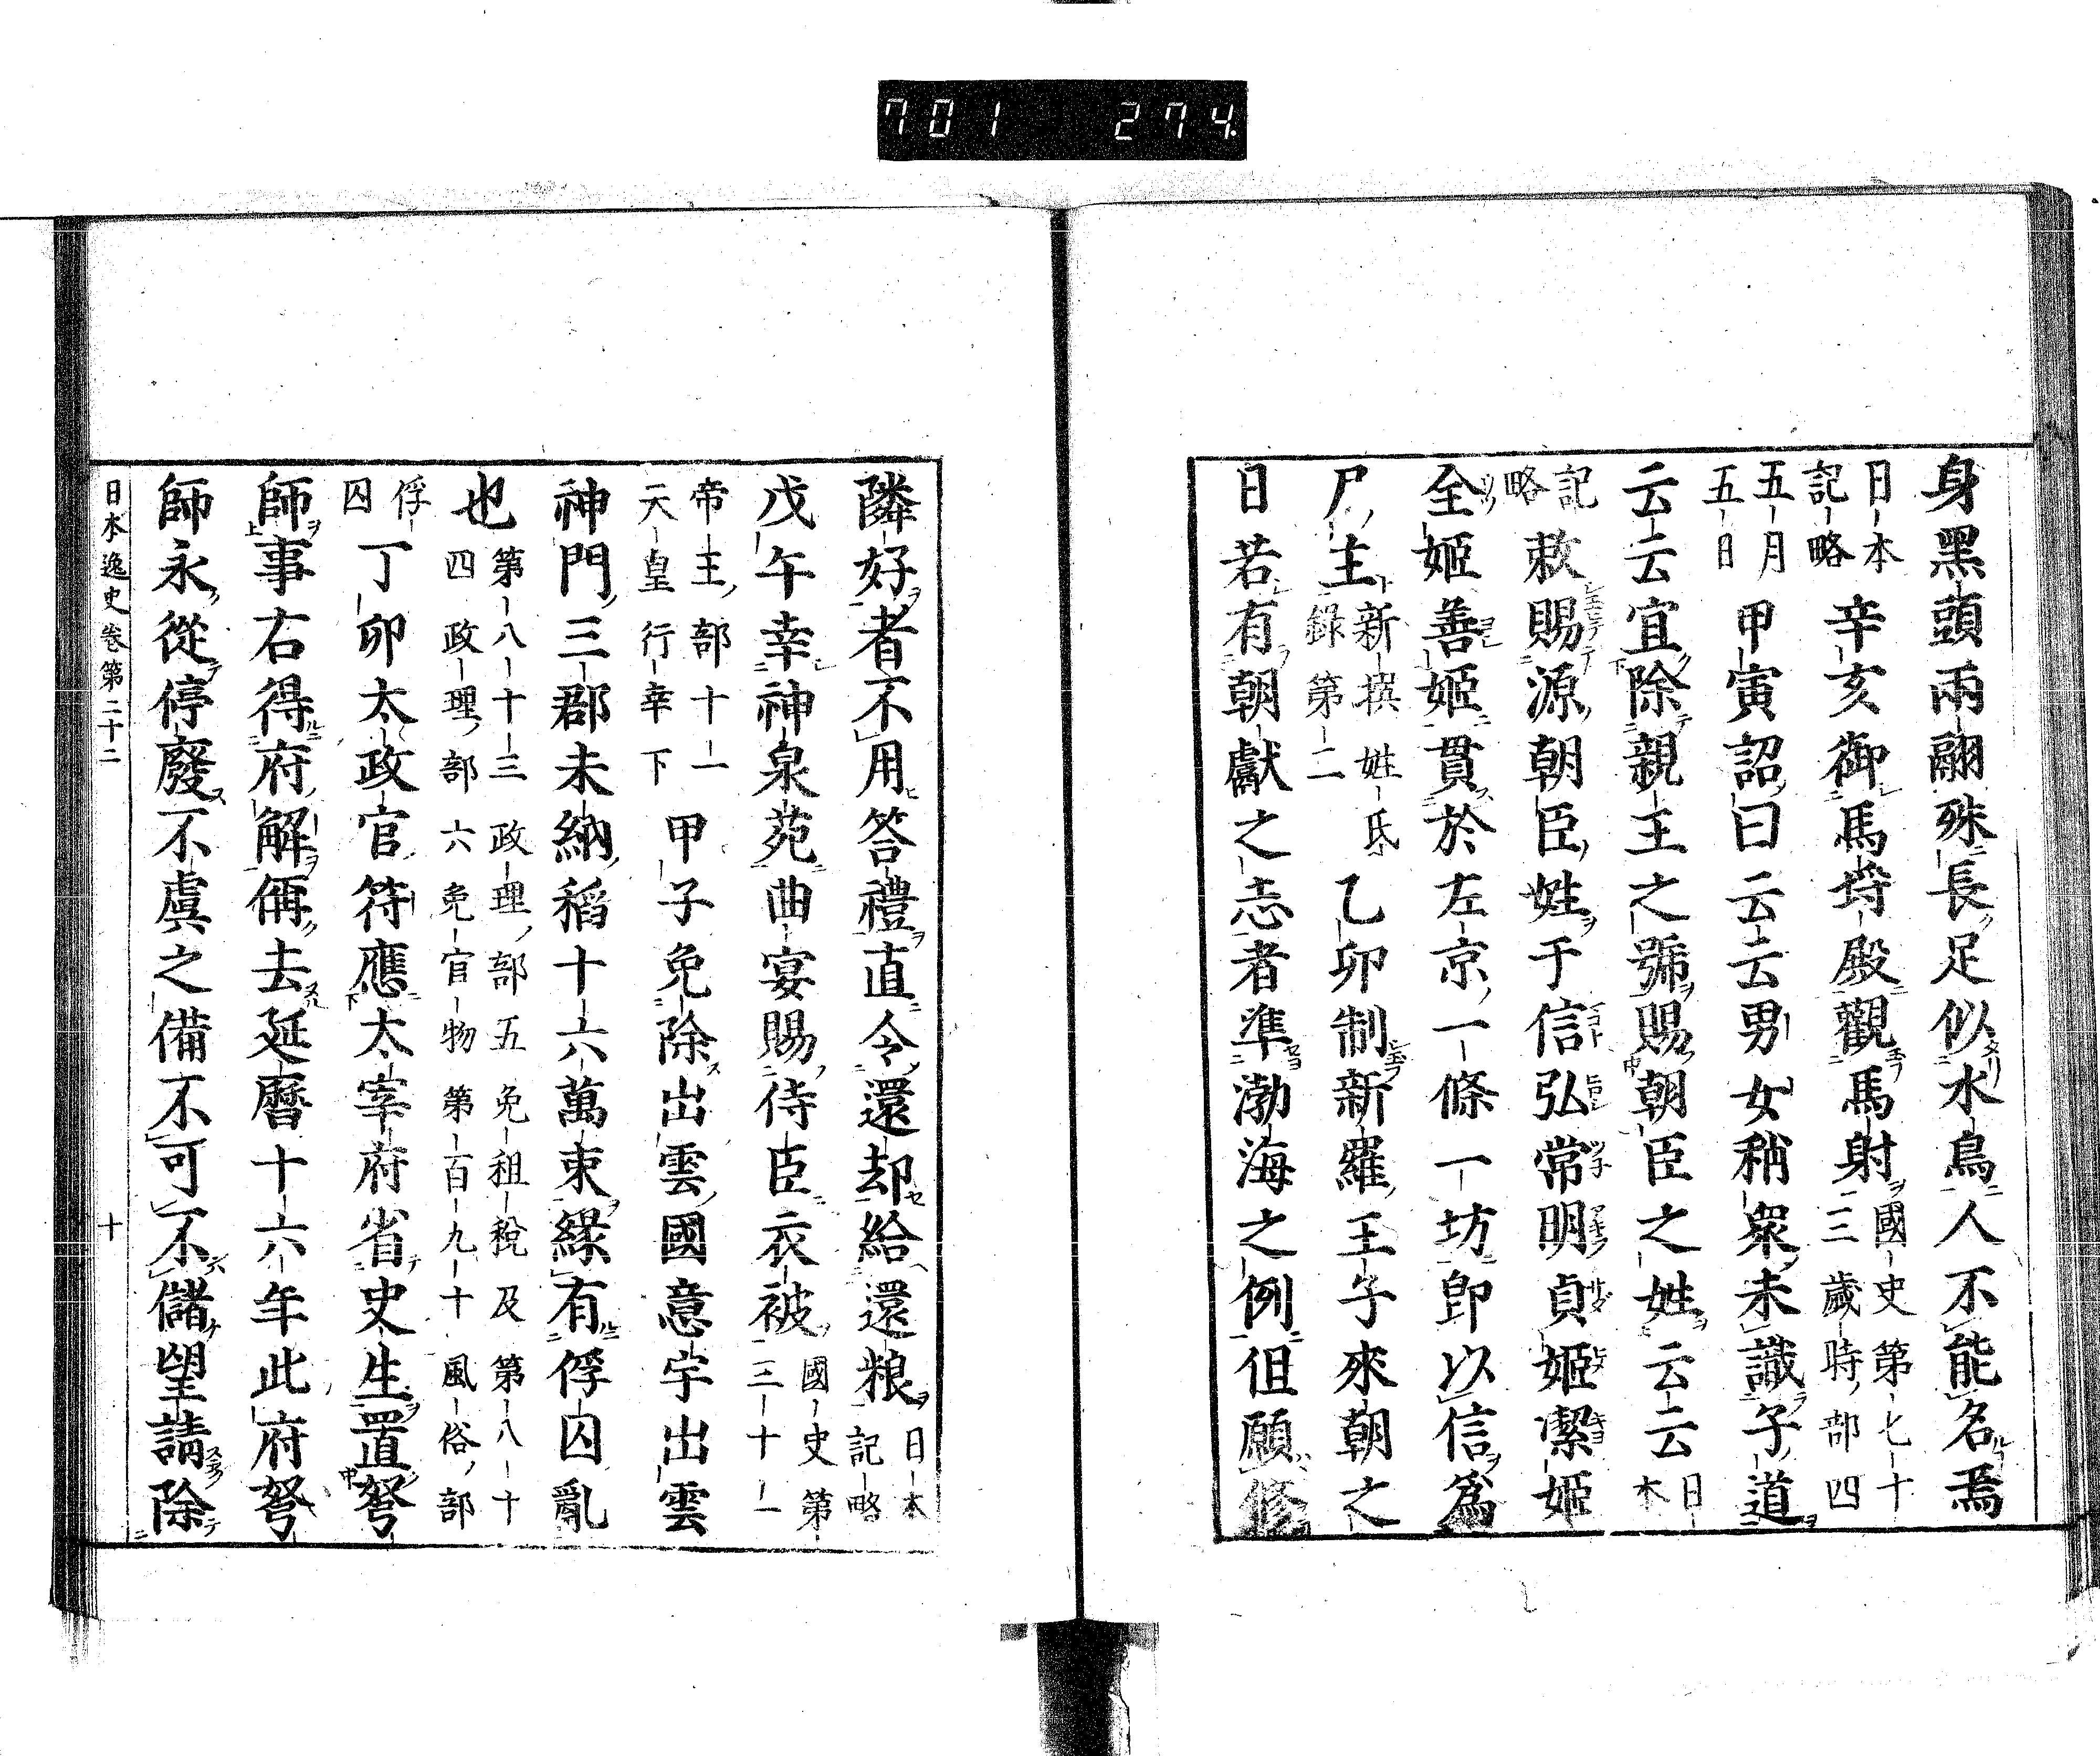 701 274.
身黑頭兩翮殊長足似水鳥人不能名焉
日本記略 辛亥御馬埒殿觀馬射 國史第七十三歲時部四
五月五日 甲寅詔曰云云男女稍衆未識子道
云云宜除親王之號賜朝臣之姓云云 日本
記略 敕賜源朝臣姓于信弘常明貞姬潔姬
全姬善姬貫於左京一條一坊卽以信爲
尸主 新撰姓氏錄第二 乙卯制新羅王子來朝之
日若有朝獻之志者準渤海之例但願修
隣好者不用答禮直令還却給還粮 日本記略
戊午幸神泉苑曲宴賜侍臣衣被 國史第三十一
帝王部十一天皇行幸下 甲子免除出雲國意宇出雲
神門三郡未納稻十六萬束緣有俘囚亂
也 第八十三政理部五免租稅及第八十四政理部六免官物第百九十風俗部
俘囚 丁卯太政官符應太宰府省史生置弩
師事右得府解偁去延曆十六年此府弩
師永從停廢不虞之備不可不儲望請除
日本逸史卷第二十二 十